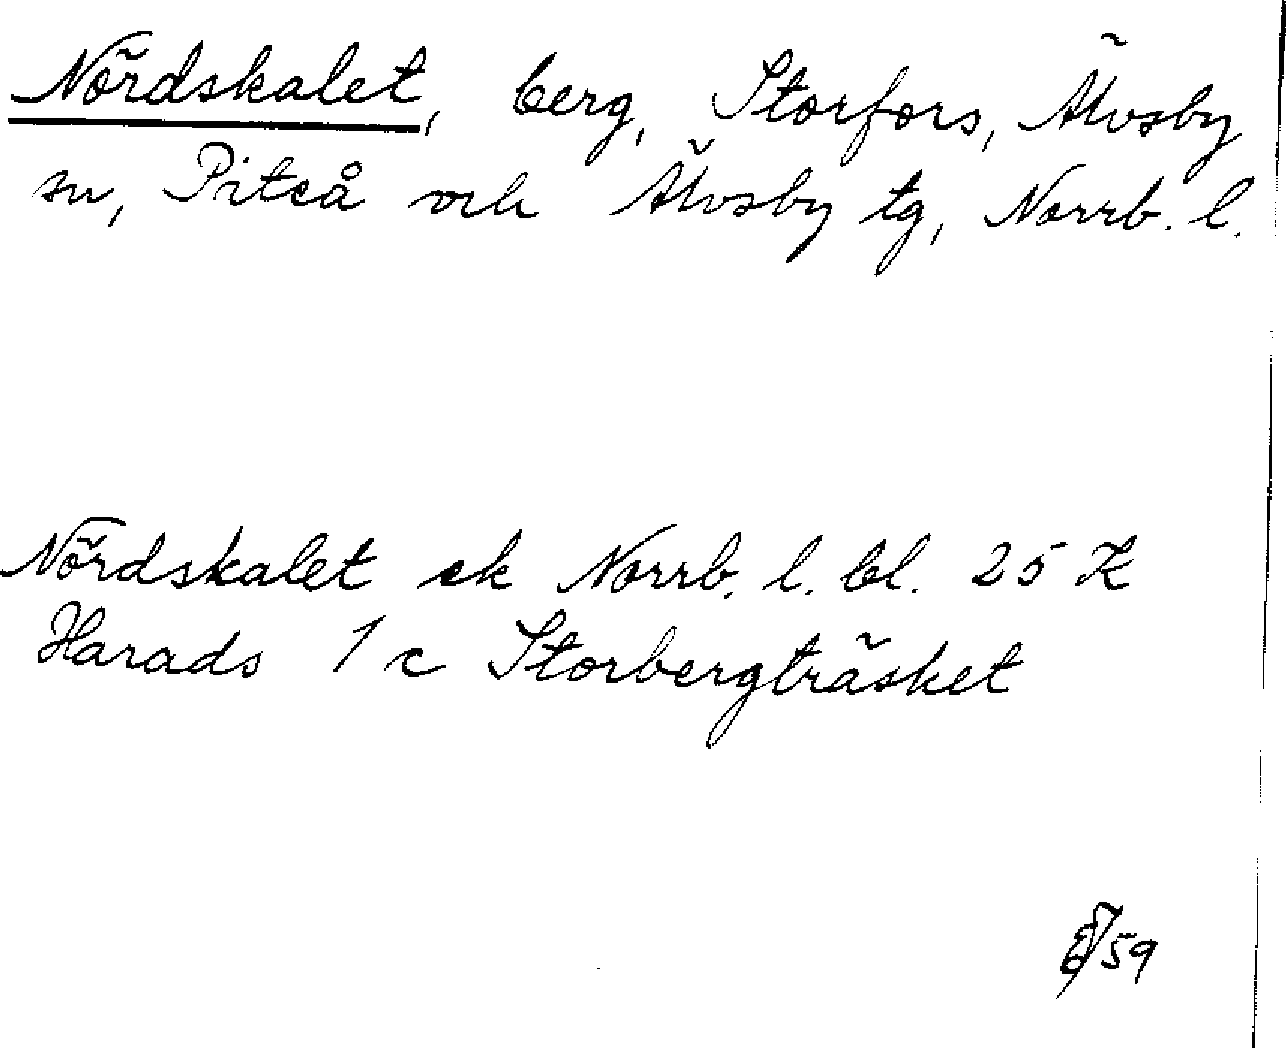 Nördskalet, berg, Storfors, Älvsby
sn, Piteå och Älvsby tg, Norrb. l.
Nördskalet ek Norrb. l. bl. 25 K
Harads 1 c Storbergträsket
59